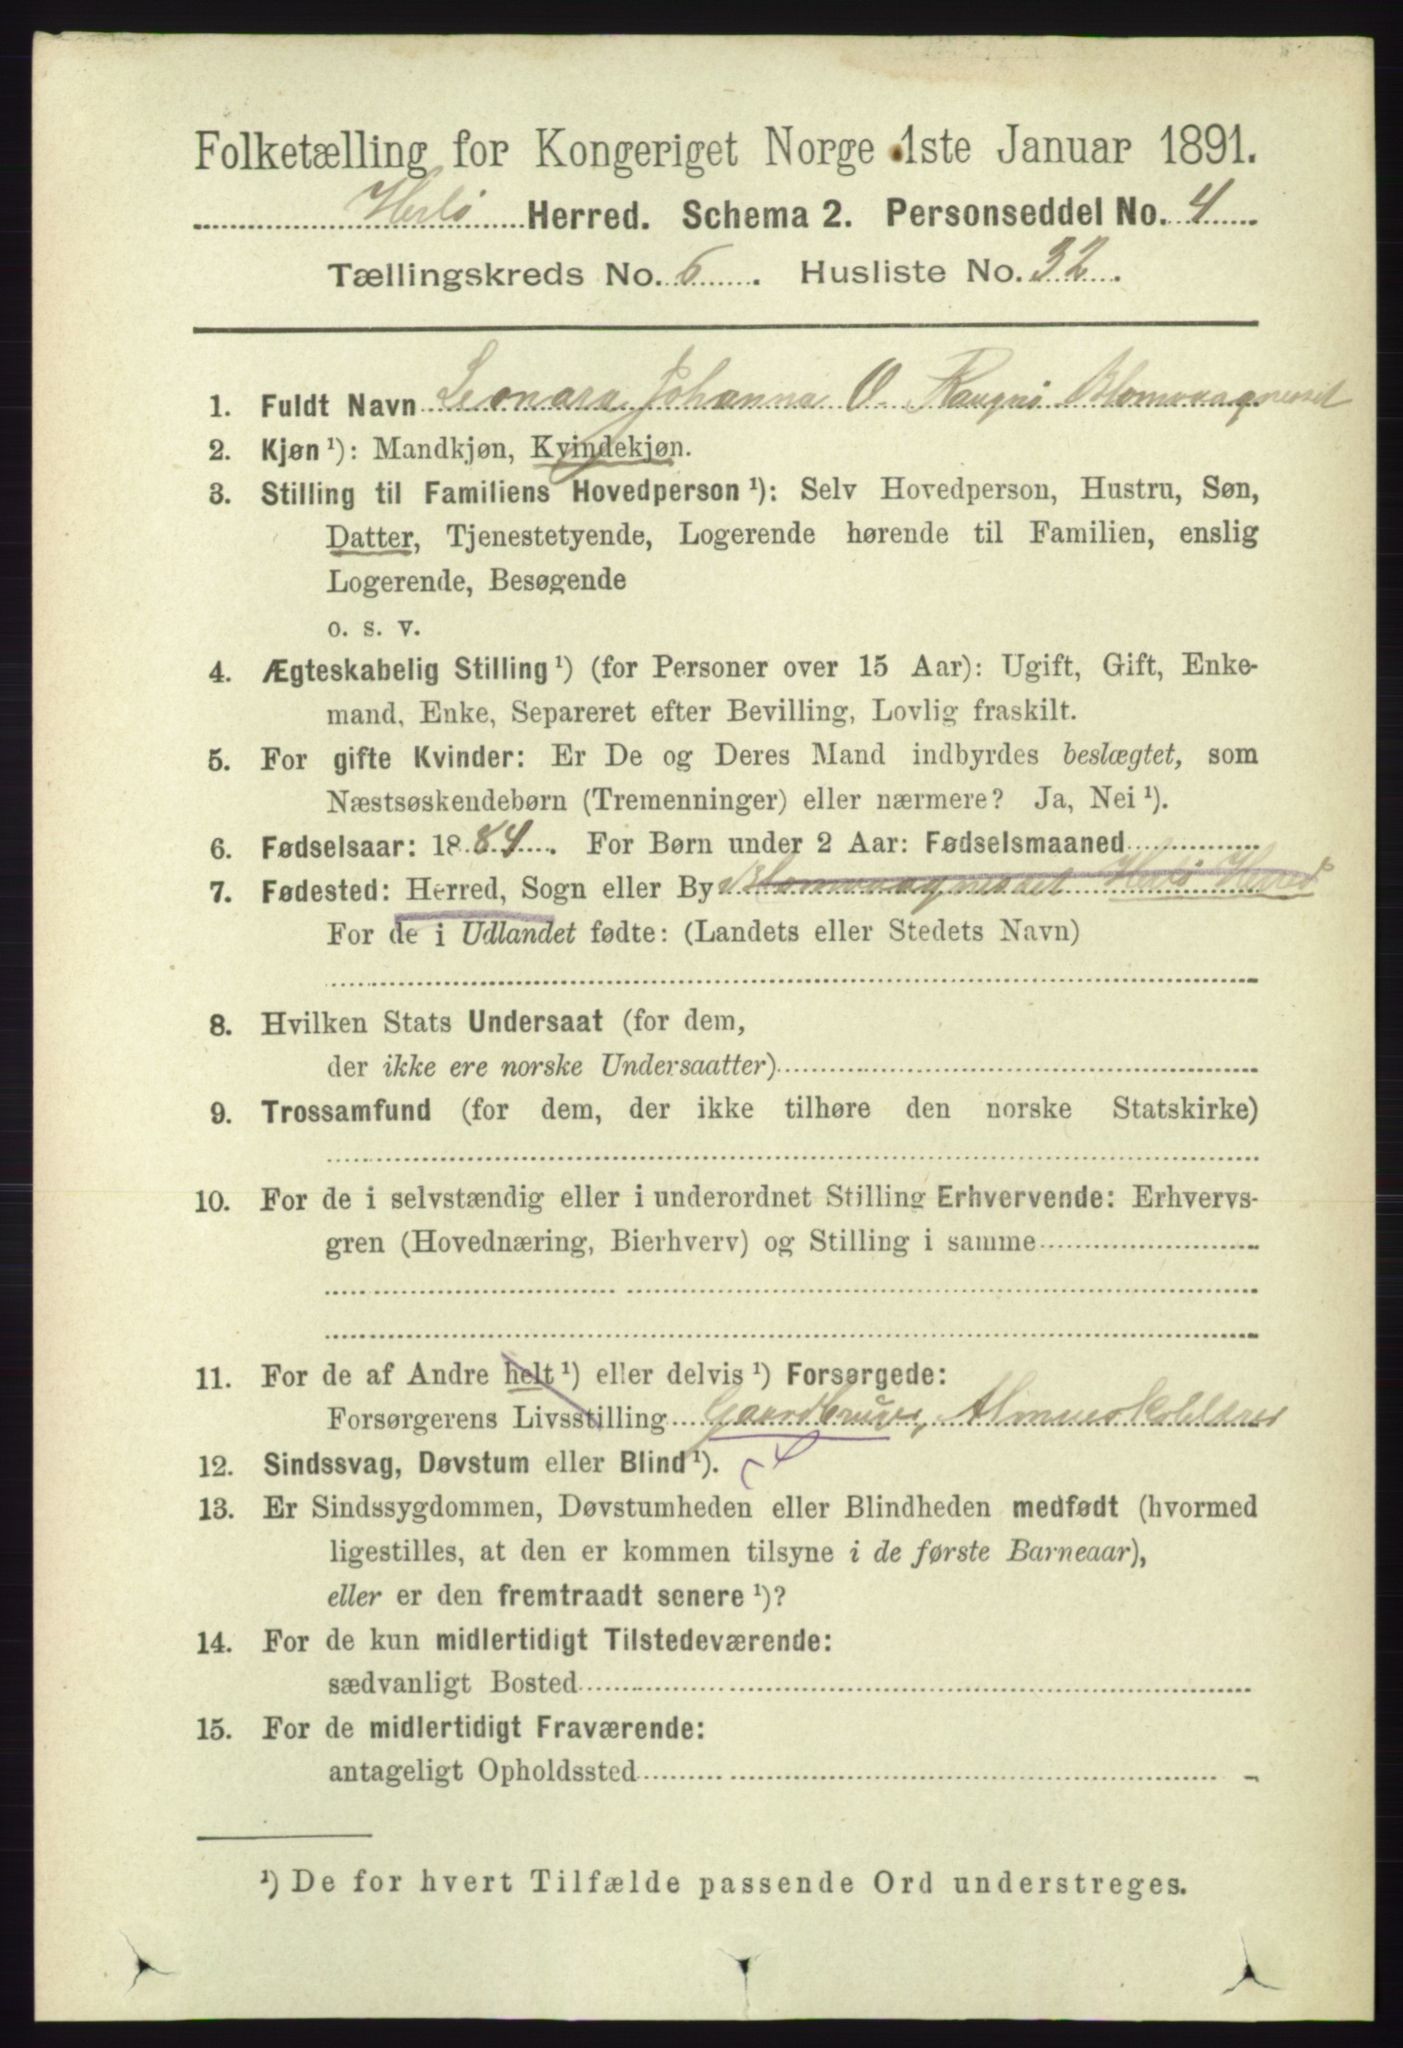 Folketælling for Kongeriget Norge 1ste Januar 1891.
Herlø Herred. Schema 2. Personseddel No. 4
Tællingskreds No. 6. Husliste No. 32.
1. Fuldt Navn Leonara Johanna O. Blomvaagnesset
2. Kjøn ¹): Mandkjøn, Kvindekjøn.
3. Stilling til Familiens Hovedperson ¹): Selv Hovedperson, Hustru, Søn,
Datter, Tjenestetyende, Logerende hørende til Familien, enslig
Logerende, Besøgende
o. s. v.
4. Ægteskabelig Stilling ¹) (for Personer over 15 Aar): Ugift, Gift, Enke-
mand, Enke, Separeret efter Bevilling, Lovlig fraskilt.
5. For gifte Kvinder: Er De og Deres Mand indbyrdes beslægtet, som
Næstsøskendebørn (Tremenninger) eller nærmere? Ja, Nei ¹).
6. Fødselsaar: 1884. For Børn under 2 Aar: Fødselsmaaned
7. Fødested: Herred, Sogn eller By Blomvaagnesset Herlø Herred
For de i Udlandet fødte: (Landets eller Stedets Navn)
8. Hvilken Stats Undersaat (for dem,
der ikke ere norske Undersaatter)
9. Trossamfund (for dem, der ikke tilhøre den norske Statskirke)
10. For de i selvstændig eller i underordnet Stilling Erhvervende: Erhvervs-
gren (Hovednæring, Bierhverv) og Stilling i samme
11. For de af Andre helt ¹) eller delvis ¹) Forsørgede:
Forsørgerens Livsstilling Gaardbruger,
12. Sindssvag, Døvstum eller Blind ¹).
13. Er Sindssygdommen, Døvstumheden eller Blindheden medfødt (hvormed
ligestilles, at den er kommen tilsyne i de første Barneaar),
eller er den fremtraadt senere ¹)?
14. For de kun midlertidigt Tilstedeværende:
sædvanligt Bosted
15. For de midlertidigt Fraværende:
antageligt Opholdssted
¹) De for hvert Tilfælde passende Ord understreges.